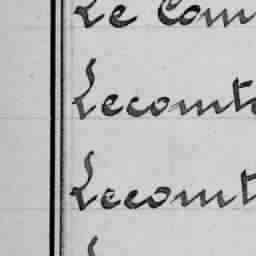 Le Com
Lecomte
Lecomt